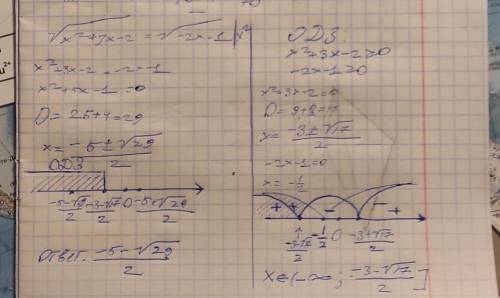 √x²+3x-2 = √-2x-1 |²
x²+3x-2=-2x-1
x²+5x-1=0
D=25+4=29
x=-5±√29/2
ОДЗ
-5-√29/2 -3-√17/2 0 -5+√29/2
Ответ: -5-√29/2
ОДЗ:
x²+3x-2≥0
-2x-1≥0
x²+3x-2=0
D=9+8=17
x=-3±√17/2
-2x-1=0
x=-1/2
+ + - - +
-3-√17/2 -1/2 0 -3+√17/2
x∈(-∞; -3-√17/2]